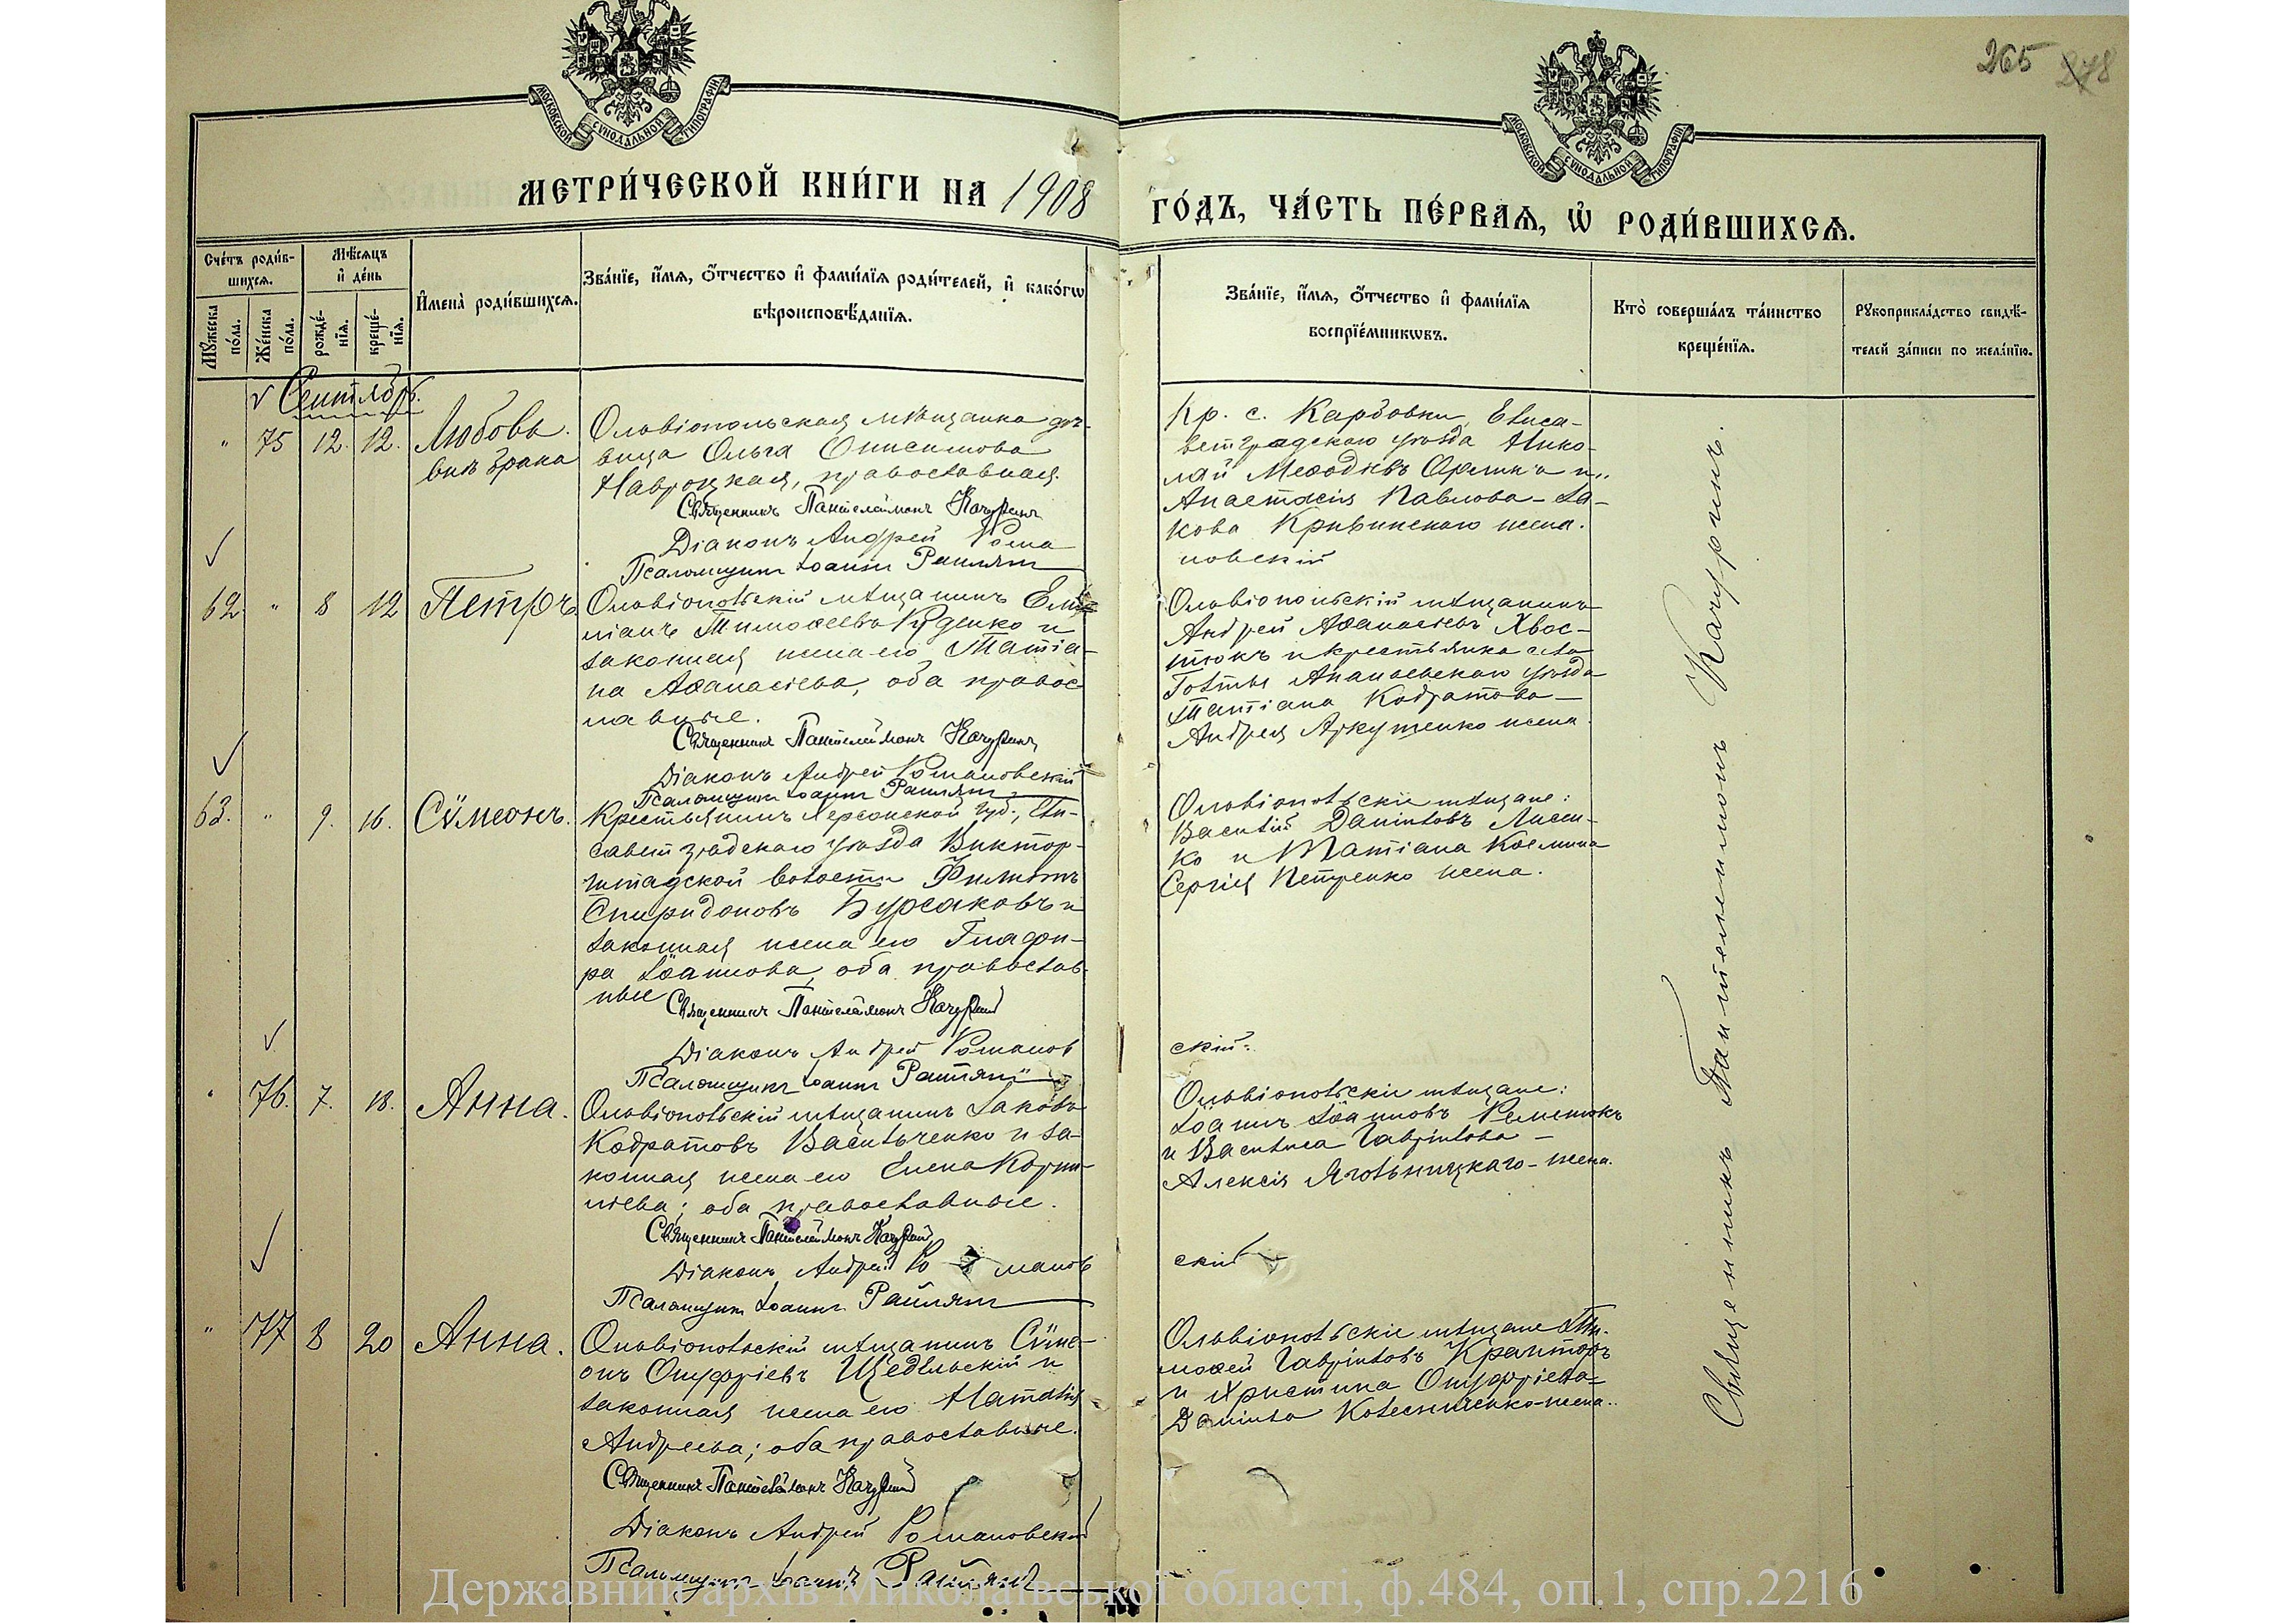 265 278
МОСКОВСКОЙ СѴНОДАЛЬНОЙ ТИПОГРАФІИ
МОСКОВСКОЙ СѴНОДАЛЬНОЙ ТИПОГРАФІИ
МЕТРИ́ЧЕСКОЙ КНИ́ГИ НА 1908
ГО́ДЪ, ЧА́СТЬ ПЕ́РВАѦ, Ѡ҆ РОДИ́ВШИХСѦ.
Сче́тъ роди́в-
шихсѧ.
Мꙋ́жеска по́ла.
Же́нска по́ла.
Мѣ́сѧцъ
и҆ де́нь
рожде́-
нїѧ.
креще́-
нїѧ.
И҆мена̀ роди́вшихсѧ.
Зва́нїе, и҆́мѧ, ѻ҆́тчество и҆ фами́лїѧ роди́телей, и҆ како́гѡ
вѣроисповѣ́данїѧ.
Зва́нїе, и҆́мѧ, ѻ҆́тчество и҆ фами́лїѧ
воспрїе́мникѡвъ.
Кто̀ соверша́лъ та́инство
креще́нїѧ.
Рꙋкоприкла́дство свидѣ́-
телей за́писи по жела́нїю.
Сентябрь.
" 75 12. 12. Любовь.
внѣ брака
Ольвіопольская мѣщанка дѣ-
вица Ольга Онисимова
Навроцкая, православная.
Священникъ Пантелеймонъ Качуринъ
Діаконъ Андрей Рома
Псаломщикъ Іоаннъ
Кр. с. Карбовки, Елиса-
ветградскаго уѣзда Нико-
лай Меѳодіевъ и
Анастасія Павлова - Іа-
кова Кривинскаго жена.
новскій
62 " 8 12 Петръ
Ольвіопольскій мѣщанинъ Еми-
ліанъ Тимоѳеевъ Руденко и
законная жена его Татіа-
на Аѳанасіева, оба правос
лавные.
Священникъ Пантелеймонъ Качуринъ
Діаконъ Андрей Романовскій
Псаломщикъ Іоаннъ
Ольвіопольскій мѣщанинъ
Андрей Аѳанасіевъ Хвос-
тюкъ и крестьянка села
Гольмы Ананьевскаго уѣзда
Татіана Кодратова -
Андрея Аркушенко жена.
63. " 9. 16. Сѷмеонъ.
Крестьянинъ Херсонской губ., Ели-
саветградскаго уѣзда Виктор-
штадской волости Филиппъ
Спиридоновъ Бурсаковъ и
законная жена его Глафи-
ра Іоаннова, оба православ-
ные
Священникъ Пантелеймонъ Качуринъ
Діаконъ Андрей Романов
Псаломщикъ Іоаннъ
Ольвіопольскіе мѣщане:
Василій Даниловъ Лисен-
ко и Татіана Космина
Сергія Петренко жена.
скій
" 76. 7. 18. Анна.
Ольвіопольскій мѣщанинъ Іаковъ
Кодратовъ Васильченко и за-
конная жена его Елена Корни-
ліева; оба православные.
Священникъ Пантелеймонъ Качуринъ
Діаконъ Андрей Ро манов
Псаломщикъ Іоаннъ
Ольвіопольскіе мѣщане:
Іоаннъ Іоанновъ
и Василиса Гавріилова -
Алексія Ягольницкаго - жена.
скій
" 77 8 20 Анна.
Ольвіопольскій мѣщанинъ Сѷме-
онъ Онуфріевъ Щедѣльскій и
законная жена его Наталія
Андреева; оба православные.
Священникъ Пантелеймонъ Качуринъ
Діаконъ Андрей Романовскій
Псаломщикъ Іоаннъ
Ольвіопольскіе мѣщане Ти-
моѳей Гавріиловъ
и Христина Онуфріева -
Даніила Колесниченко - жена.
Священникъ Пантелеймонъ Качуринъ.
Державний архів Миколаївської області, ф.484, оп.1, спр.2216